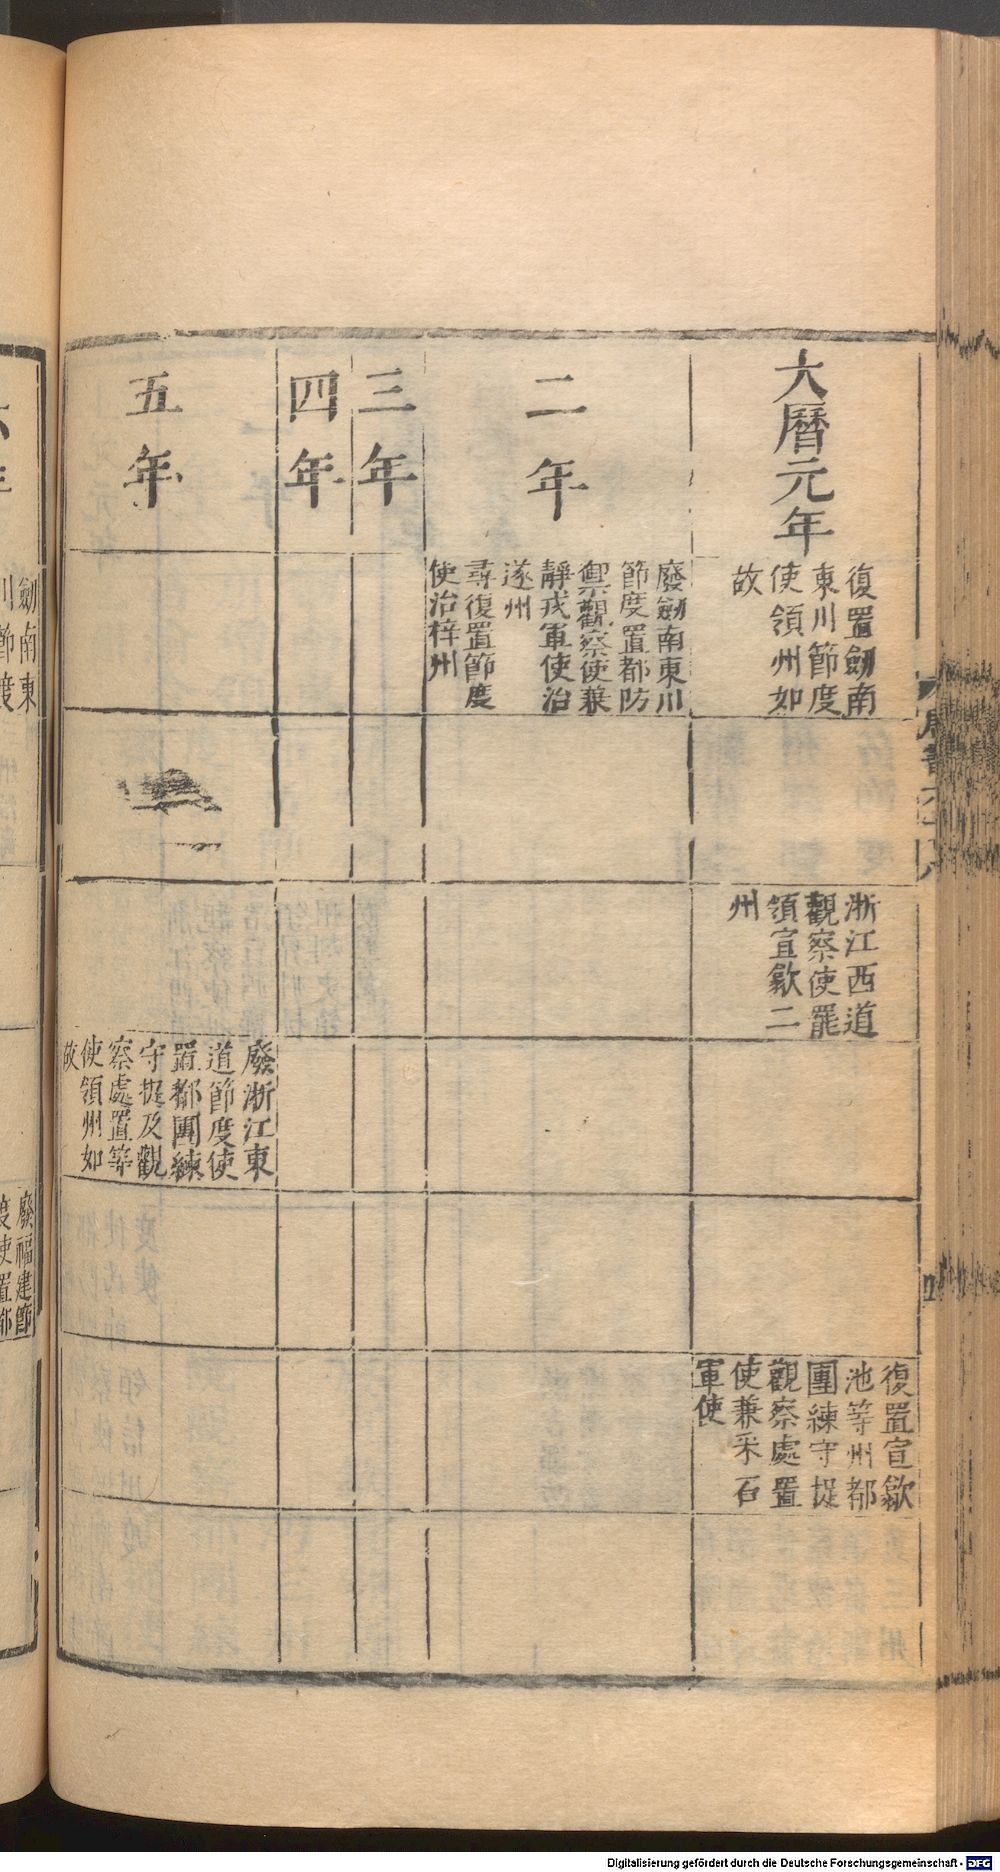 大曆元年
復置劒南
東川節度
使領州如
故
浙江西道
觀察使罷
領宣歙二
州
復置宣歙
池等州都
團練守捉
觀察處置
使兼采石
軍使
二年
廢劒南東川
節度置都防
禦觀察使兼
靜戎軍使治
遂州
尋復置節度
使治梓州
三年
四年
五年
廢浙江東
道節度使
置都團練
守捉及觀
察處置等
使領州如
故
劒南東
川節度
廢福建節
度使置都
Digitalisierung gefördert durch die Deutsche Forschungsgemeinschaft - DFG